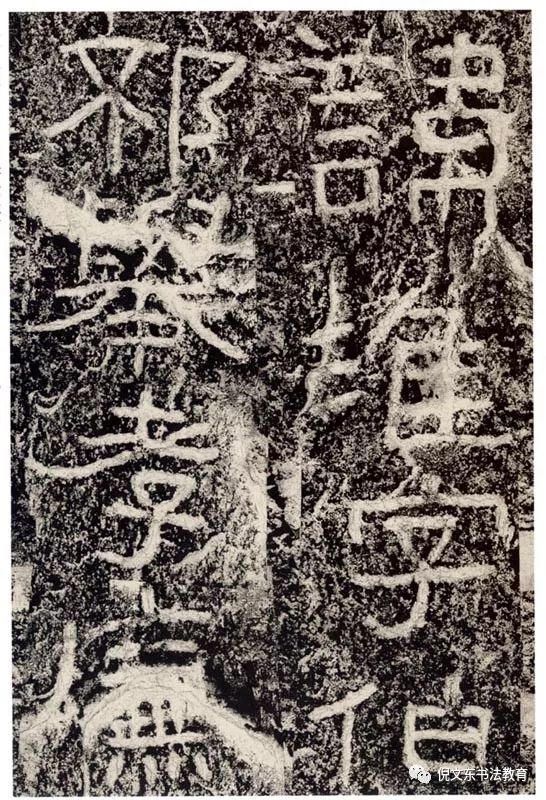 諱淮字伯
邳舉孝廉
倪文东书法教育